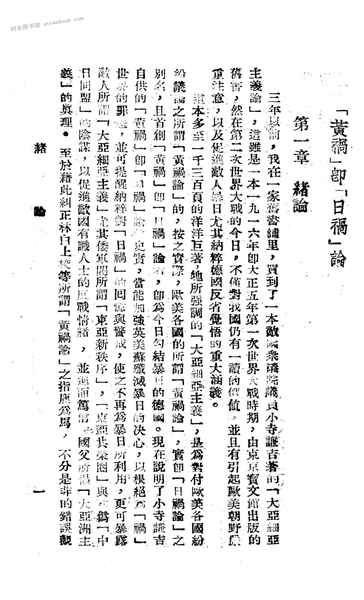 「黃禍」卽「日禍」論
第一章 緒論
三年以前，我在一家舊書舖里，買到了一本敵國衆議院議員小寺謙吉著的「大亞細亞
主義論」，這雖是一本一九一六年卽大正五年第一次世界大戰時期，由東京寶文館出版的
舊書，然在第二次世界大戰的今日，不僅對我國仍有一讀的價值，並且有引起歐美朝野嚴
重注意，以及促進敵人暴日尤其納粹德國反省覺悟的重大涵義。
這本多至一千三百頁的洋洋巨著，牠所強調的「大亞細亞主義」，是爲對付歐美各國紛
紛議論之所謂「黃禍論」的，按之實際，歐美各國的所謂「黃禍論」，實卽「日禍論」之
別名，且首創「黃禍」卽「日禍」論者，卽爲今日勾結暴日的德國。現在說明了小寺謙吉
自供的「黃禍」卽「日禍」論 史實，當能加強英美蘇殲滅暴日的决心，以根絕 「日禍」
世界的罪 ，並可提醒納粹對「日禍」的回憶與警戒，使之不再爲暴日所利用，更可暴露
敵人所謂「大亞細亞主義」尤其倭軍閥所謂「東亞新秩序」，「東亞共榮圈」與 爲「中
日同盟」的陰謀，以促進敵國有識人士的反戰情緒，並 國父所 「大亞洲主
義」的眞理。至於藉此糾正林白上校等所謂「黃禍論」之指鹿爲馬，不分是非的錯誤觀
緒 論
一